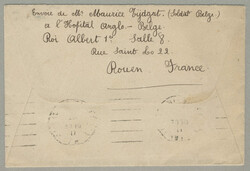 Envoi de Mr Maurice Tydgat. (Soldat Belge)
a l'Hopital Anglo-Belge
Roi Albert 1er Salle 8.
Rue Saint Lo 22
Rouen France